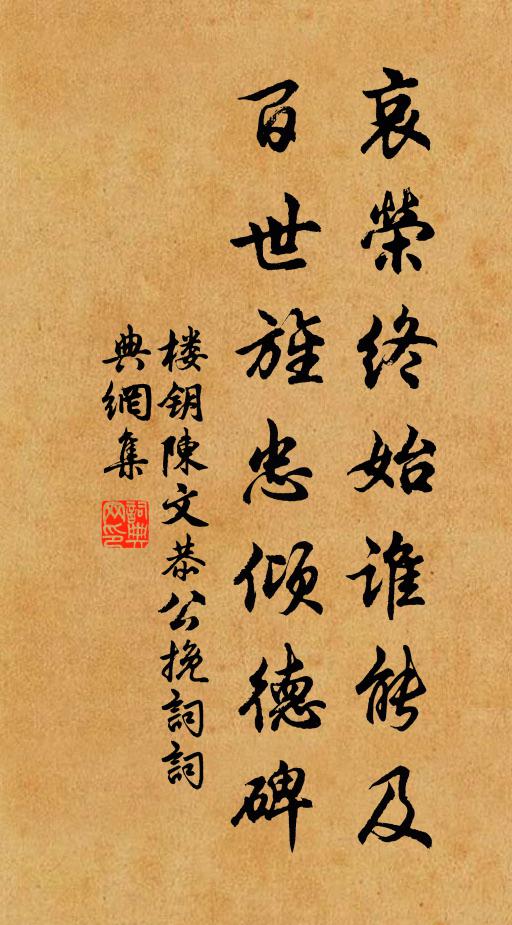 哀榮終始誰能及
百世旌忠傾德碑
楼钥陳文恭公挽詞詞
典網集
詞典
网印